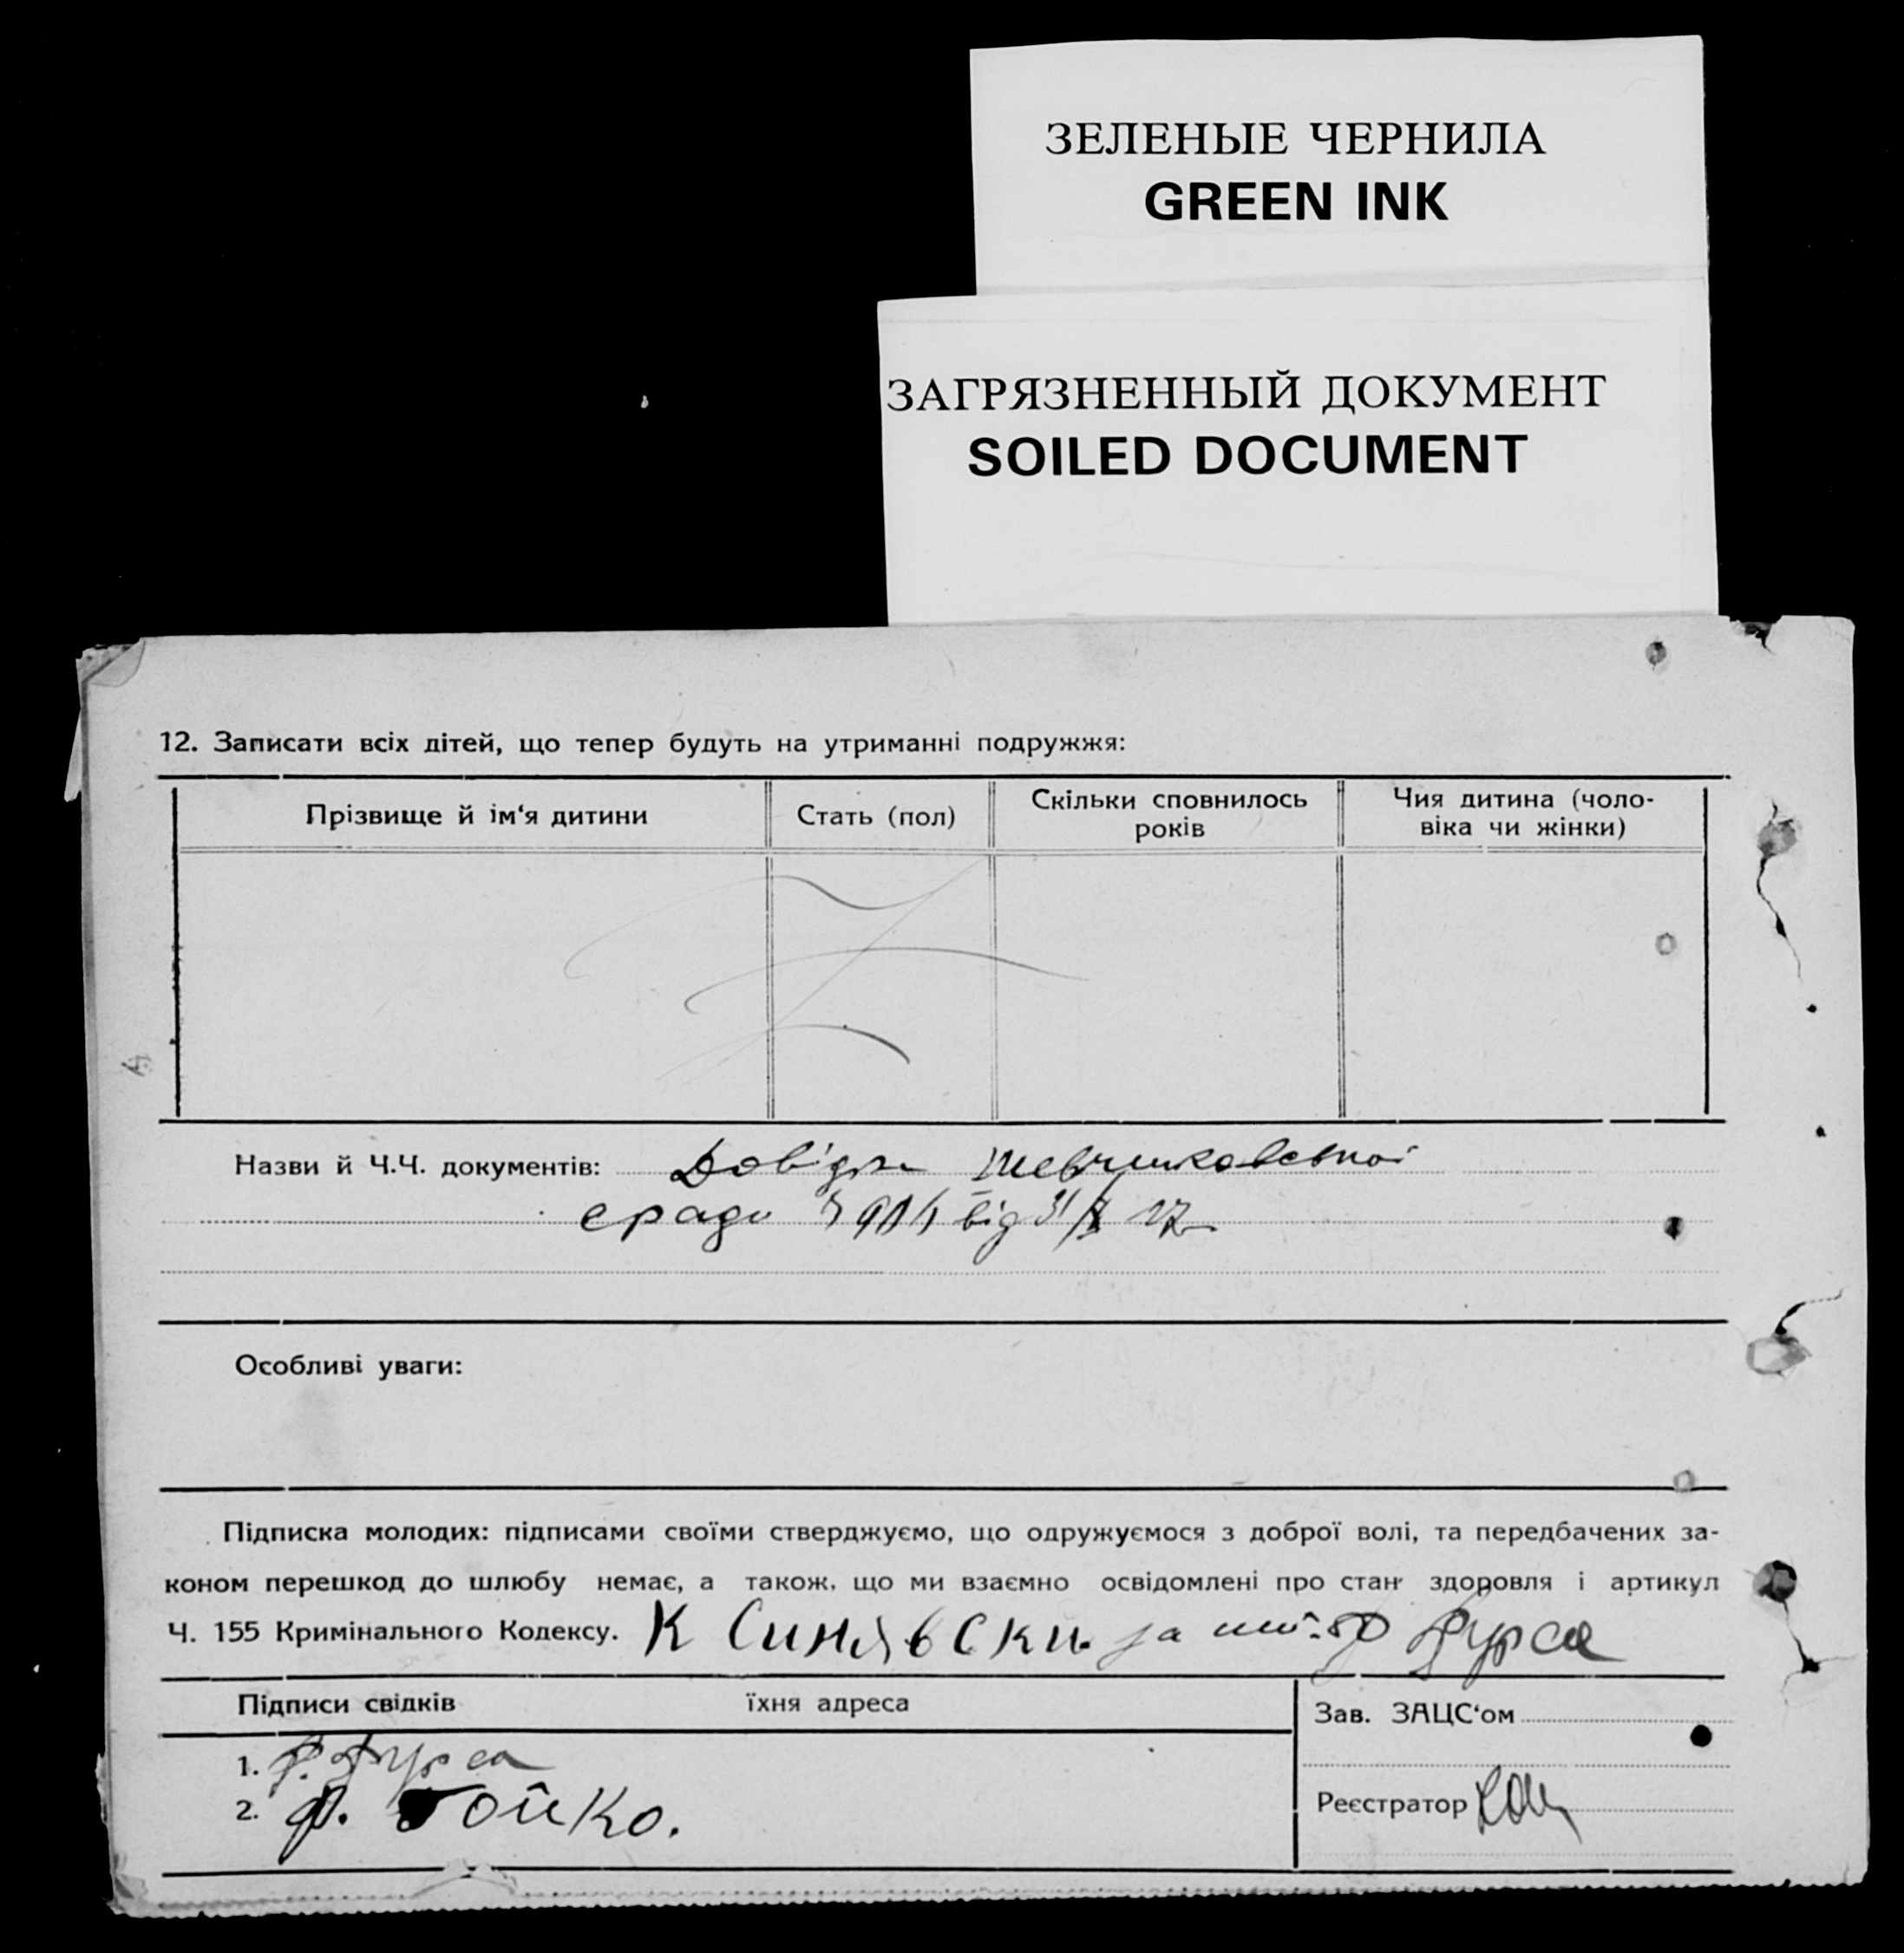 ЗЕЛЕНЫЕ ЧЕРНИЛА
GREEN INK
ЗАГРЯЗНЕННЫЙ ДОКУМЕНТ
SOILED DOCUMENT
12. Записати всіх дітей, що тепер будуть на утриманні подружжя:
Прізвище й ім‘я дитини
Стать (пол)
Скільки сповнилось
років
Чия дитина (чоло-
віка чи жінки)
Назви й Ч.Ч. документів: Довідка
від
Особливі уваги:
Підписка молодих: підписами своїми стверджуємо, що одружуємося з доброї волі, та передбачених за-
коном перешкод до шлюбу немає, а також, що ми взаємно освідомлені про стан здоровля і артикул
Ч. 155 Кримінального Кодексу. К Синявски за Фурса
Підписи свідків їхня адреса
1. Фурса
2. Ф. Бойко.
Зав. ЗАЦС‘ом
Реєстратор